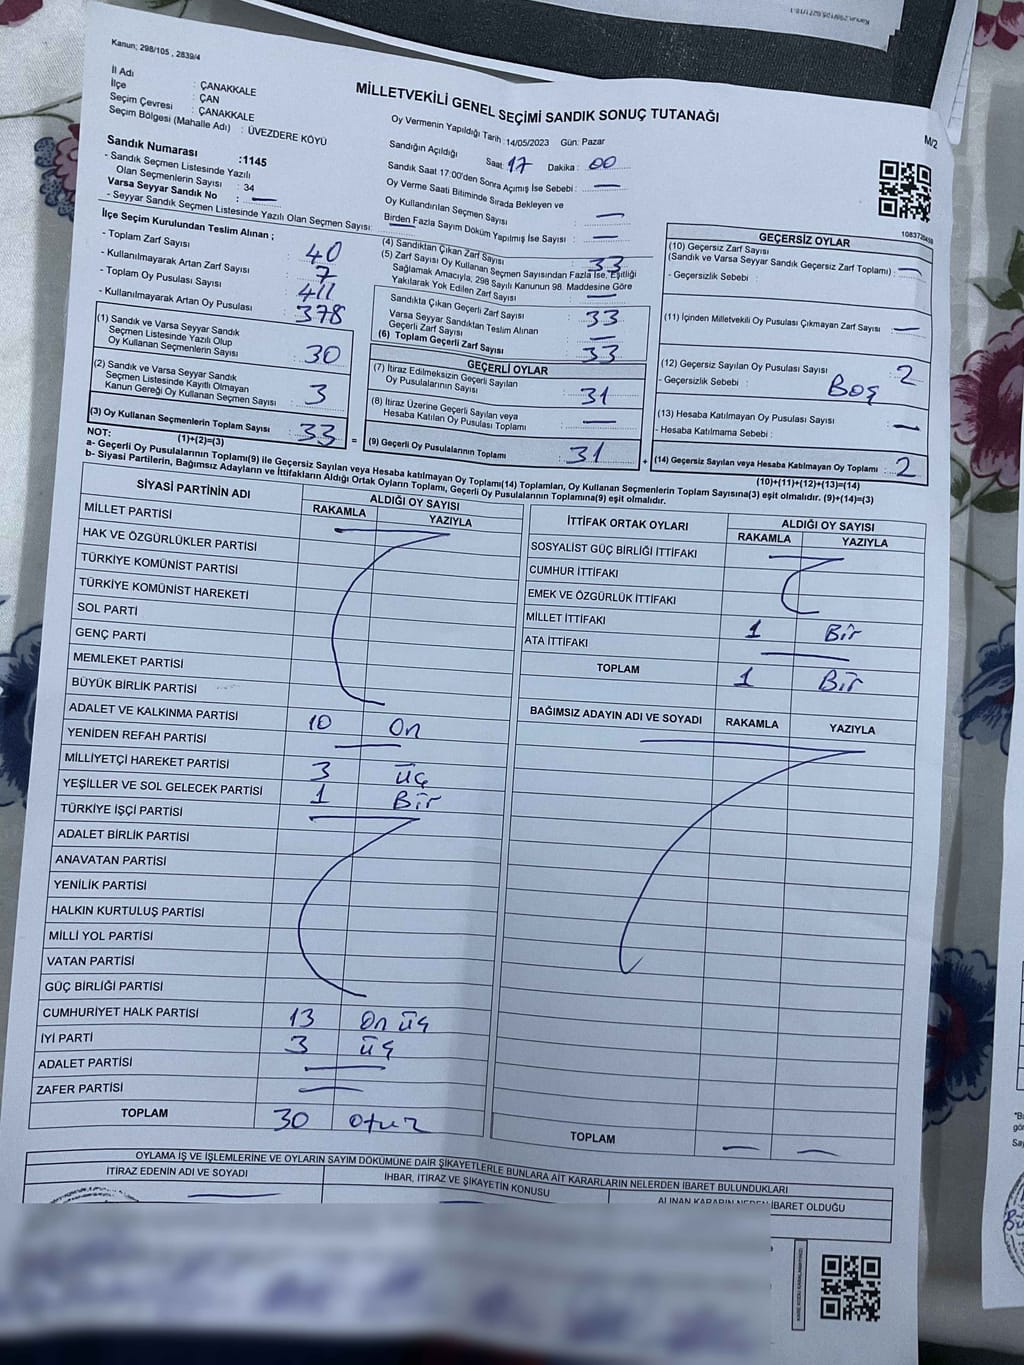 Kanun; 298/105 , 2839/4
İl Adı : ÇANAKKALE
İlçe : ÇAN
Seçim Çevresi : ÇANAKKALE
Seçim Bölgesi (Mahalle Adı) : ÜVEZDERE KÖYÜ
Sandık Numarası :1145
- Sandık Seçmen Listesinde Yazılı
Olan Seçmenlerin Sayısı : 34
Varsa Seyyar Sandık No : —
- Seyyar Sandık Seçmen Listesinde Yazılı Olan Seçmen Sayısı: —
MİLLETVEKİLİ GENEL SEÇİMİ SANDIK SONUÇ TUTANAĞI
M/2
Oy Vermenin Yapıldığı Tarih :14/05/2023 Gün: Pazar
Sandığın Açıldığı Saat: 17 Dakika : 00
Sandık Saat 17:00'den Sonra Açımış İse Sebebi : —
Oy Verme Saati Bitiminde Sırada Bekleyen ve
Oy Kullandırılan Seçmen Sayısı : —
Birden Fazla Sayım Döküm Yapılmış İse Sayısı : —
İlçe Seçim Kurulundan Teslim Alınan ;
- Toplam Zarf Sayısı : 40
- Kullanılmayarak Artan Zarf Sayısı : 7
- Toplam Oy Pusulası Sayısı : 411
- Kullanılmayarak Artan Oy Pusulası : 378
(1) Sandık ve Varsa Seyyar Sandık
Seçmen Listesinde Yazılı Olup
Oy Kullanan Seçmenlerin Sayısı : 30
(2) Sandık ve Varsa Seyyar Sandık
Seçmen Listesinde Kayıtlı Olmayan
Kanun Gereği Oy Kullanan Seçmen Sayısı : 3
(3) Oy Kullanan Seçmenlerin Toplam Sayısı : 33 =
(1)+(2)=(3)
(4) Sandıktan Çıkan Zarf Sayısı : 33
(5) Zarf Sayısı Oy Kullanan Seçmen Sayısından Fazla İse, Eşitliği
Sağlamak Amacıyla, 298 Sayılı Kanunun 98. Maddesine Göre
Yakılarak Yok Edilen Zarf Sayısı : —
Sandıkta Çıkan Geçerli Zarf Sayısı : 33
Varsa Seyyar Sandıktan Teslim Alınan
Geçerli Zarf Sayısı : —
(6) Toplam Geçerli Zarf Sayısı : 33
GEÇERLİ OYLAR
(7) İtiraz Edilmeksizin Geçerli Sayılan
Oy Pusulalarının Sayısı : 31
(8) İtiraz Üzerine Geçerli Sayılan veya
Hesaba Katılan Oy Pusulası Toplamı : —
(9) Geçerli Oy Pusulalarının Toplamı : 31 +
GEÇERSİZ OYLAR
(10) Geçersiz Zarf Sayısı
(Sandık ve Varsa Seyyar Sandık Geçersiz Zarf Toplamı) : —
- Geçersizlik Sebebi :
(11) İçinden Milletvekili Oy Pusulası Çıkmayan Zarf Sayısı : —
(12) Geçersiz Sayılan Oy Pusulası Sayısı : 2
- Geçersizlik Sebebi : Boş
(13) Hesaba Katılmayan Oy Pusulası Sayısı : —
- Hesaba Katılmama Sebebi :
(14) Geçersiz Sayılan veya Hesaba Katılmayan Oy Toplamı : 2
(10)+(11)+(12)+(13)=(14)
NOT:
a- Geçerli Oy Pusulalarının Toplamı(9) ile Geçersiz Sayılan veya Hesaba katılmayan Oy Toplamı(14) Toplamları, Oy Kullanan Seçmenlerin Toplam Sayısına(3) eşit olmalıdır. (9)+(14)=(3)
b- Siyasi Partilerin, Bağımsız Adayların ve İttifakların Aldığı Ortak Oyların Toplamı, Geçerli Oy Pusulalarının Toplamına(9) eşit olmalıdır.
SİYASİ PARTİNİN ADI ALDIĞI OY SAYISI
RAKAMLA YAZIYLA
MİLLET PARTİSİ
HAK VE ÖZGÜRLÜKLER PARTİSİ
TÜRKİYE KOMÜNİST PARTİSİ
TÜRKİYE KOMÜNİST HAREKETİ
SOL PARTİ
GENÇ PARTİ
MEMLEKET PARTİSİ
BÜYÜK BİRLİK PARTİSİ
ADALET VE KALKINMA PARTİSİ 10 On
YENİDEN REFAH PARTİSİ —
MİLLİYETÇİ HAREKET PARTİSİ 3 üç
YEŞİLLER VE SOL GELECEK PARTİSİ 1 Bir
TÜRKİYE İŞÇİ PARTİSİ
ADALET BİRLİK PARTİSİ
ANAVATAN PARTİSİ
YENİLİK PARTİSİ
HALKIN KURTULUŞ PARTİSİ
MİLLİ YOL PARTİSİ
VATAN PARTİSİ
GÜÇ BİRLİĞİ PARTİSİ
CUMHURİYET HALK PARTİSİ 13 On üç
İYİ PARTİ 3 üç
ADALET PARTİSİ —
ZAFER PARTİSİ —
TOPLAM 30 otuz
İTTİFAK ORTAK OYLARI ALDIĞI OY SAYISI
RAKAMLA YAZIYLA
SOSYALİST GÜÇ BİRLİĞİ İTTİFAKI
CUMHUR İTTİFAKI
EMEK VE ÖZGÜRLÜK İTTİFAKI
MİLLET İTTİFAKI 1 Bir
ATA İTTİFAKI —
TOPLAM 1 Bir
BAĞIMSIZ ADAYIN ADI VE SOYADI RAKAMLA YAZIYLA
TOPLAM — —
OYLAMA İŞ VE İŞLEMLERİNE VE OYLARIN SAYIM DÖKÜMÜNE DAİR ŞİKAYETLERLE BUNLARA AİT KARARLARIN NELERDEN İBARET BULUNDUKLARI
İTİRAZ EDENİN ADI VE SOYADI İHBAR, İTİRAZ VE ŞİKAYETİN KONUSU ALINAN KARARIN NEDEN İBARET OLDUĞU